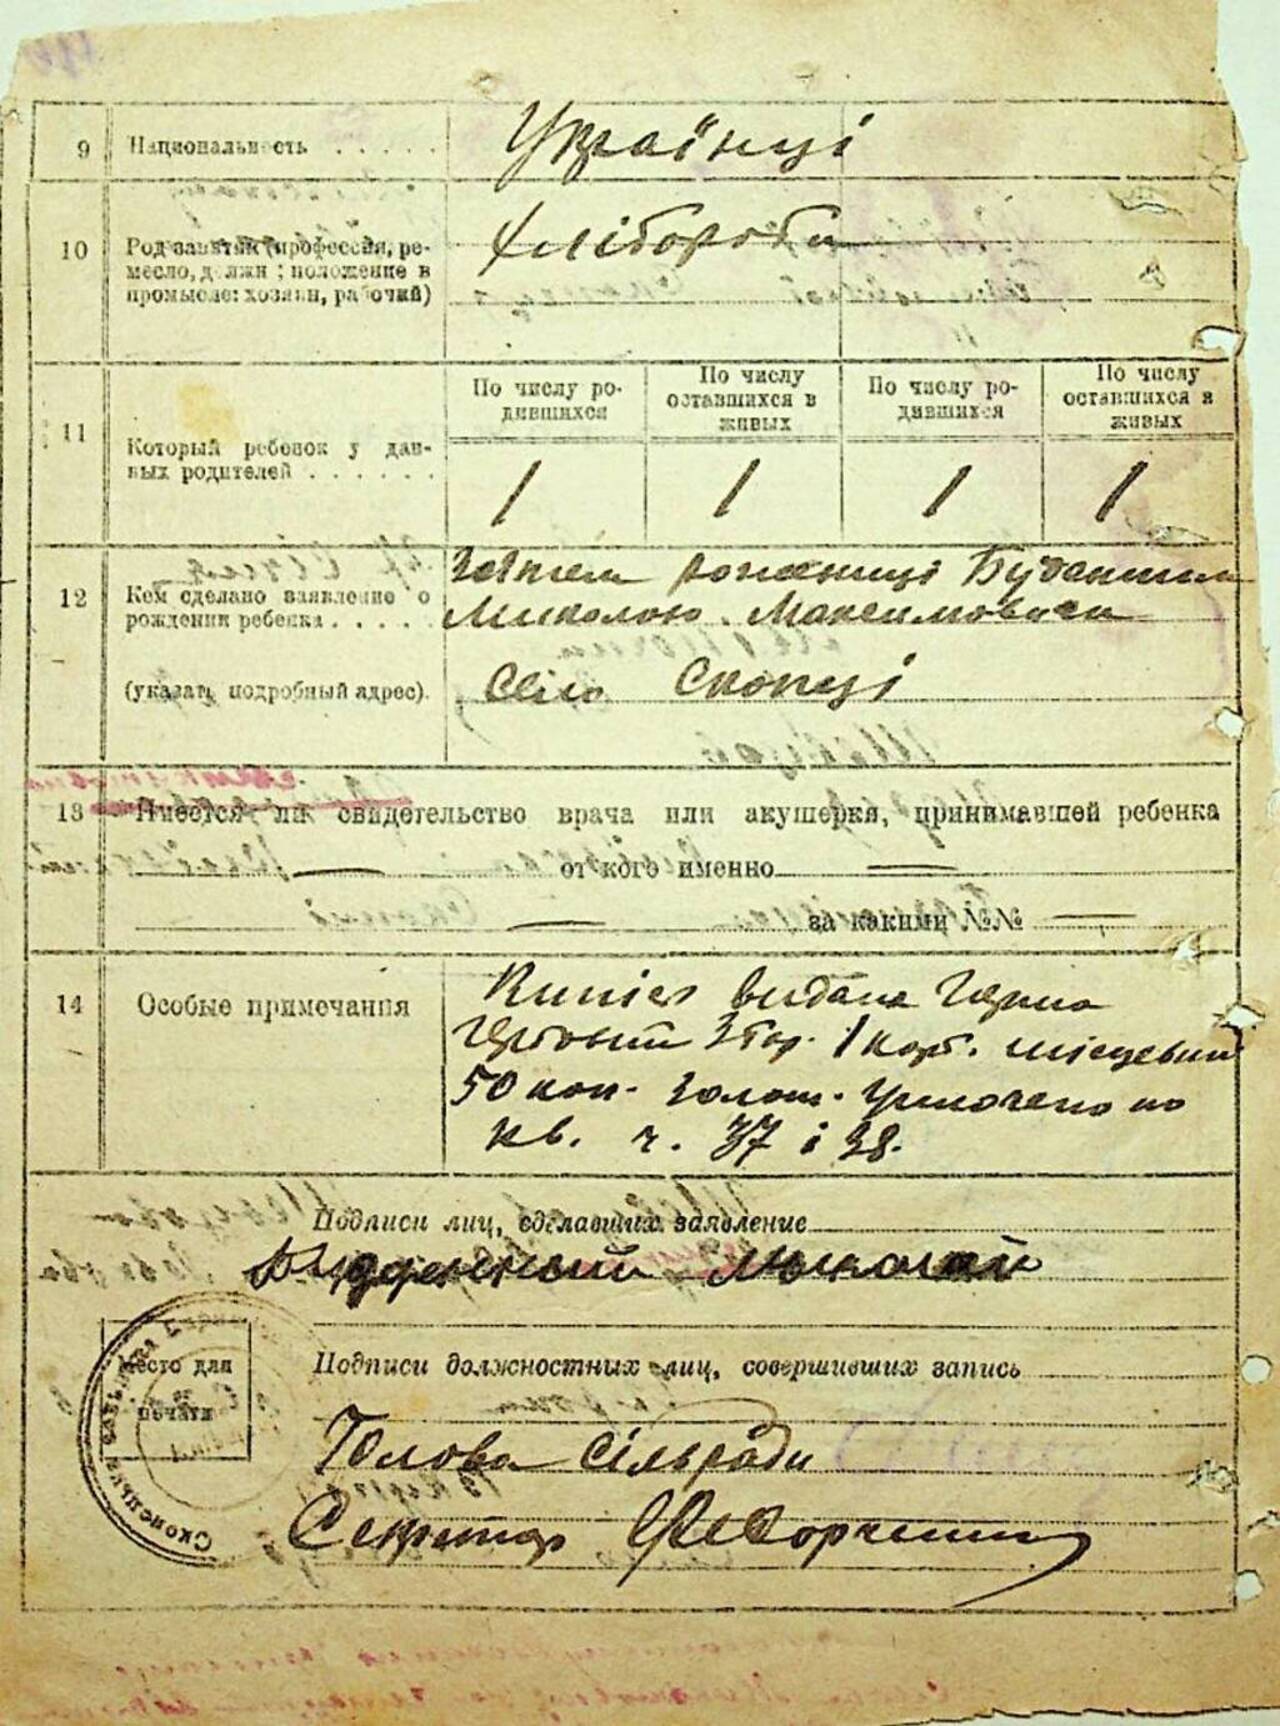 9 Национальность . . . . . Українці
10 Род занятий (профессия, ре-
месло, должн ; положение в
промысле: хозяин, рабочий)
Хлібороби
11 Который ребенок у дан-
ных родителей . . . . . .
По числу ро-
дившихся
По числу
оставшихся в
живых
По числу ро-
дившихся
По числу
оставшихся в
живых
1 1 1 1
12 Кем сделано заявление о
рождении ребенка . . . .
(указать подробный адрес).
Миколою Максимовичем
Село Скопці
13 Имеется ли свидетельство врача или акушерки, принимавшей ребенка
от кого именно
за какими №№
14 Особые примечания
видана
Гербовий Збор. 1 карб. місцевий
50 коп. золот. Уплочено по
кв. ч. 37 і 38.
Подписи лиц, сделавших заявление
Миколай
Место для
печати
Подписи должностных лиц, совершивших запись
Голова Сільради
Секретар